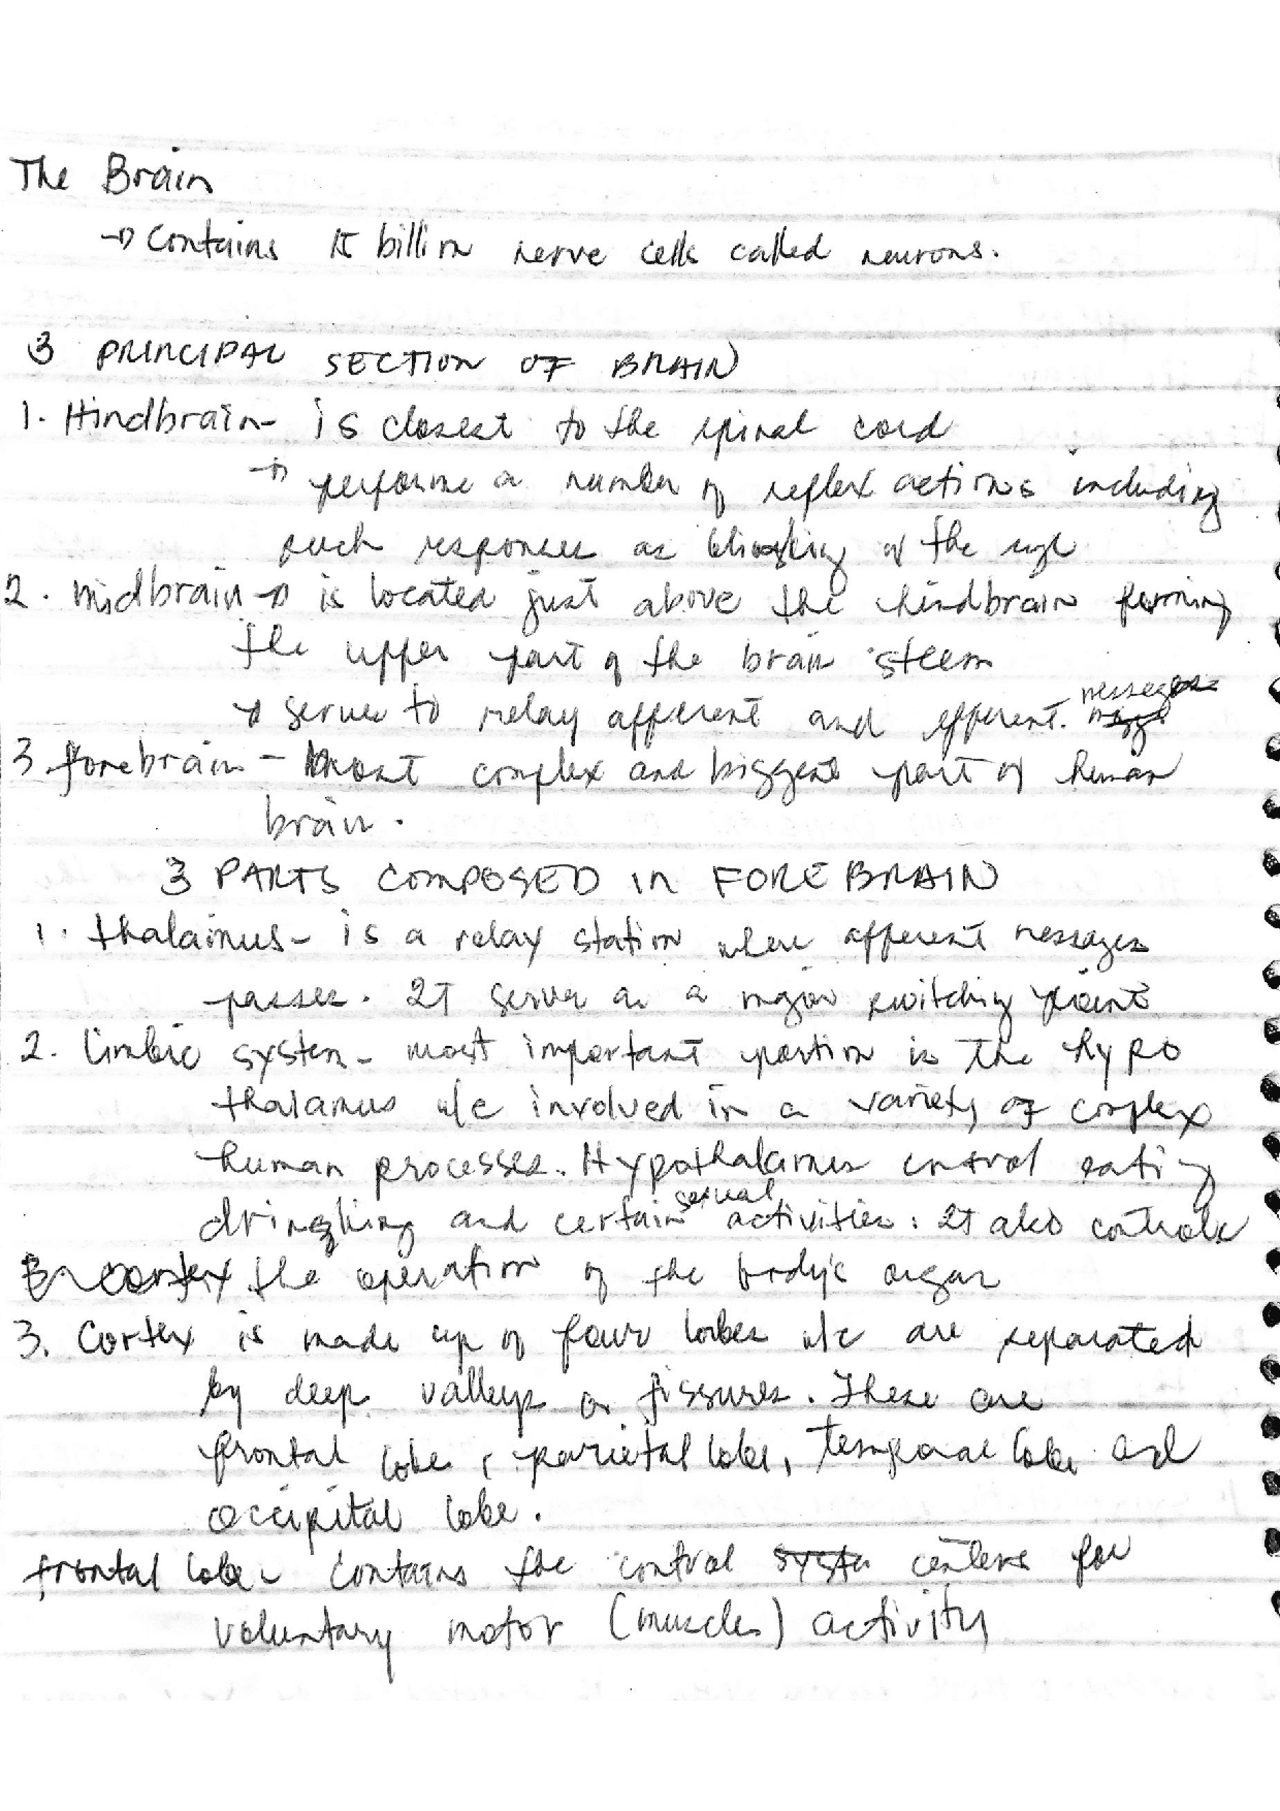 The Brain
→ Contains 15 billion nerve cells called neurons.
3 PRINCIPAL SECTION OF BRAIN
1. Hindbrain - is closest to the spinal cord
→ performe a number of reflex actions including
such responses as blinking of the eye
2. midbrain → is located just above the hindbrain forming
the upper part of the brain steem
→ serves to relay afferent and efferent messages
3 forebrain - most complex and biggest part of human
brain.
3 PARTS COMPOSED in FOREBRAIN
1. thalamus - is a relay station where afferent messages
passes. It serves as a major switching point
2. limbic system - most important portion is the hypo
thalamus w/c involved in a variety of complex
human processes. Hypothalamus control eating
drinking and certain sexual activities. It also controls
3 - cortex the operation of the body's organ
3. Cortex is made up of four lobes w/c are separated
by deep valleys or fissures. These are
frontal lobe, parietal lobe, temporal lobe and
occipital lobe.
frontal lobe - contains the control centers for
voluntary motor (muscles) activity